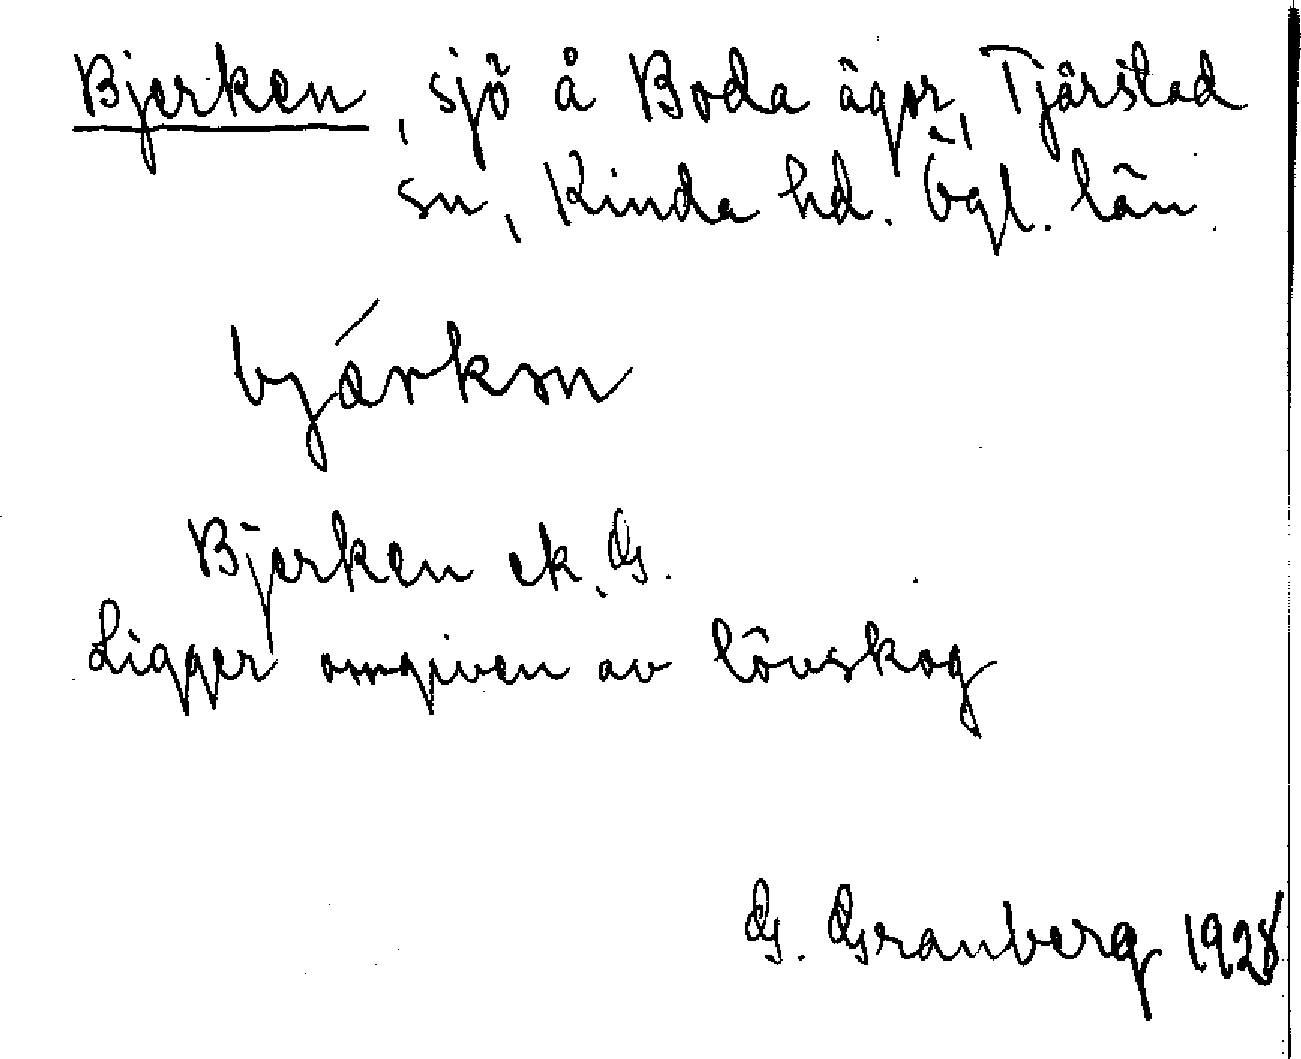 Bjerken, sjö å Boda ägor, Tjärstad
sn, Kinda hd. Ögl. län.
bjǽrkən
Bjerken ek. G.
Ligger omgiven av lövskog
G. Granberg 1928